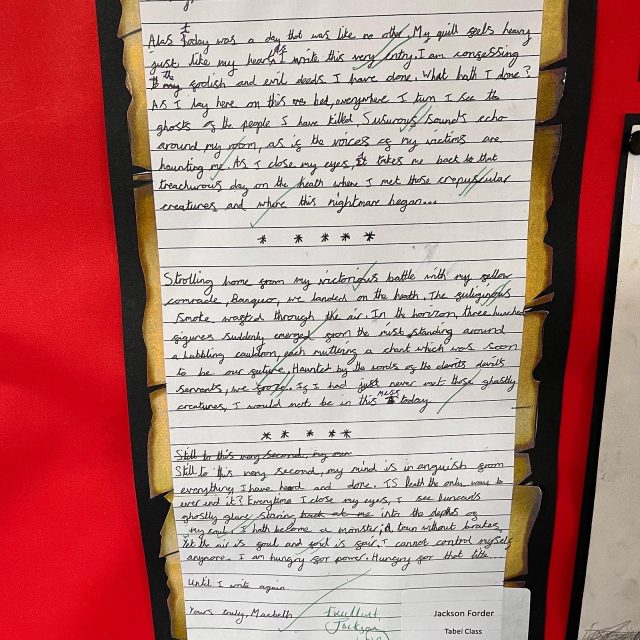 Alas today was a day that was like no other. My quill feels heavy
just like my heart as I write this very entry. I am confessing
to the foolish and evil deeds I have done. What hath I done?
As I lay here on this bed, everywhere I turn I see the
ghosts of the people I have killed. Susurous sounds echo
around my room, as if the voices of my victims are
haunting me. As I close my eyes, it takes me back to that
treachurous day on the heath where I met those crepuscular
creatures and where this nightmare began...
* * * * *
Strolling home from my victorious battle with my fellow
comrade, Banquo, we landed on the heath. The fuliginous
smoke wafted through the air. In the horizon, three hunched
figures suddenly emerged from the mist, standing around
a bubbling cauldron, each muttering a chant which was soon
to be our future. Haunted by the words of the devil's
servants, we froze. If I had just never met those ghastly
creatures, I would not be in this mess today.
* * * * *
Still to this very second, my
Still to this very second, my mind is in anguish from
everything I have heard and done. IS Death the only way to
ever end it? Everytime I close my eyes, I see
ghostly glare staring back at me into the depths of
my soul. I hath become a monster; a town without brakes,
Yet the air is foul and foul is fair. I cannot control myself
anymore. I am hungry for power. Hungry for that title...
Until I write again
Yours truly, Macbeth
Excellent
Jackson
Jackson Forder
Tabel Class